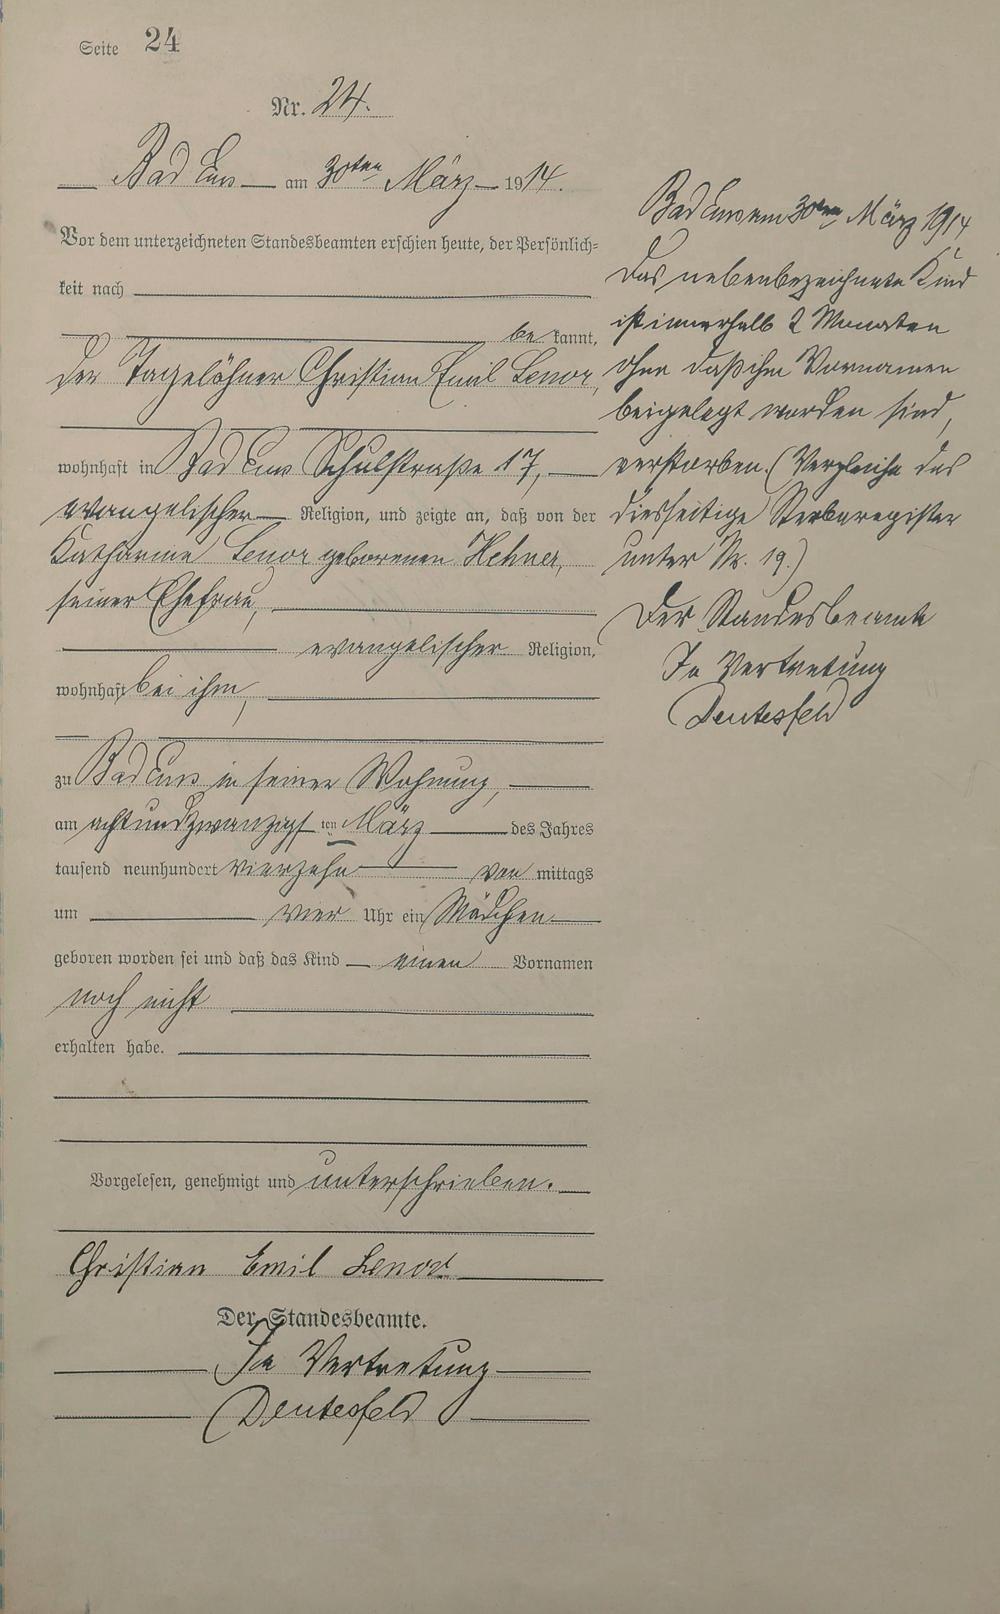 Seite 24
Nr. 24.
Bad Ems am 30ten März 1914.
Vor dem unterzeichneten Standesbeamten erschien heute, der Persönlich=
keit nach
be kannt,
der Tagelöhner Christian Emil Lenor,
wohnhaft in Bad Ems Schulstraße 17,
evangelischer Religion, und zeigte an, daß von der
Katharine Lenor geborenen Hehner,
seiner Ehefrau,
evangelischer Religion,
wohnhaft bei ihm,
zu Bad Ems in seiner Wohnung,
am achtundzwanzigsten März des Jahres
tausend neunhundert vierzehn vor mittags
um vier Uhr ein Mädchen
geboren worden sei und daß das Kind einen Vornamen
noch nicht
erhalten habe.
Vorgelesen, genehmigt und unterschrieben.
Christian Emil Lenor
Der Standesbeamte.
In Vertretung
Deutesfeld
Bad Ems am 30ten März 1914
Das nebenbezeichnete Kind
ist innerhalb 2 Monaten
ohne daß ihm Vornamen
beigelegt worden sind,
verstorben. (Vergleiche das
diesseitige Sterberegister
unter Nr. 19.)
Der Standesbeamte
In Vertretung
Deutesfeld